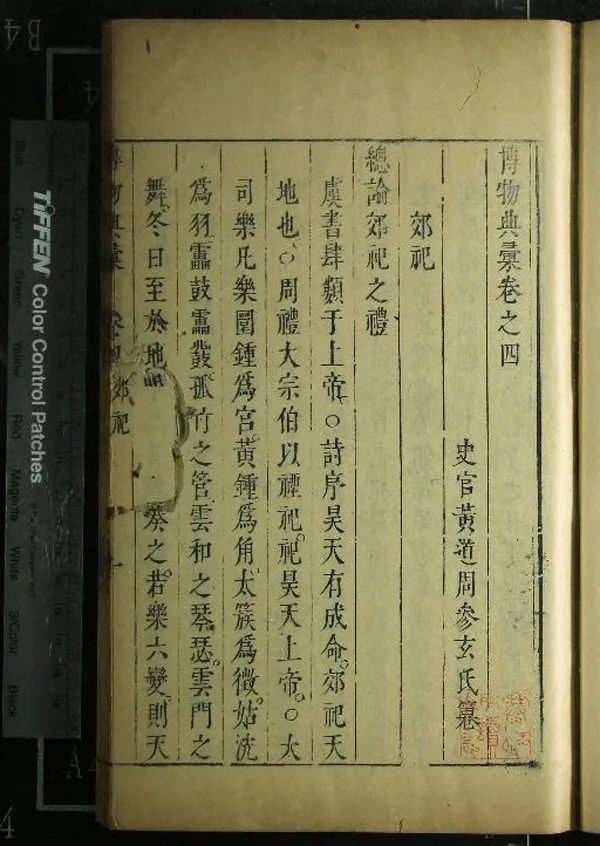 博物典彙卷之四
史官黃道周參玄氏纂
郊祀
總論郊祀之禮
虞書肆類于上帝○詩序昊天有成命郊祀天
地也○周禮大宗伯以禋祀祀昊天上帝○大
司樂凡樂圜鍾爲宮黃鍾爲角太簇爲徵姑洗
爲羽靁鼓靁鼗孤竹之管雲和之琴瑟雲門之
舞冬日至於地 奏之若樂六變則天
博物典彙 卷四 郊祀 一
TIFFEN Color Control Patches
Blue Cyan Green Yellow Red Magenta White 3/Color Black
B4
A4
4